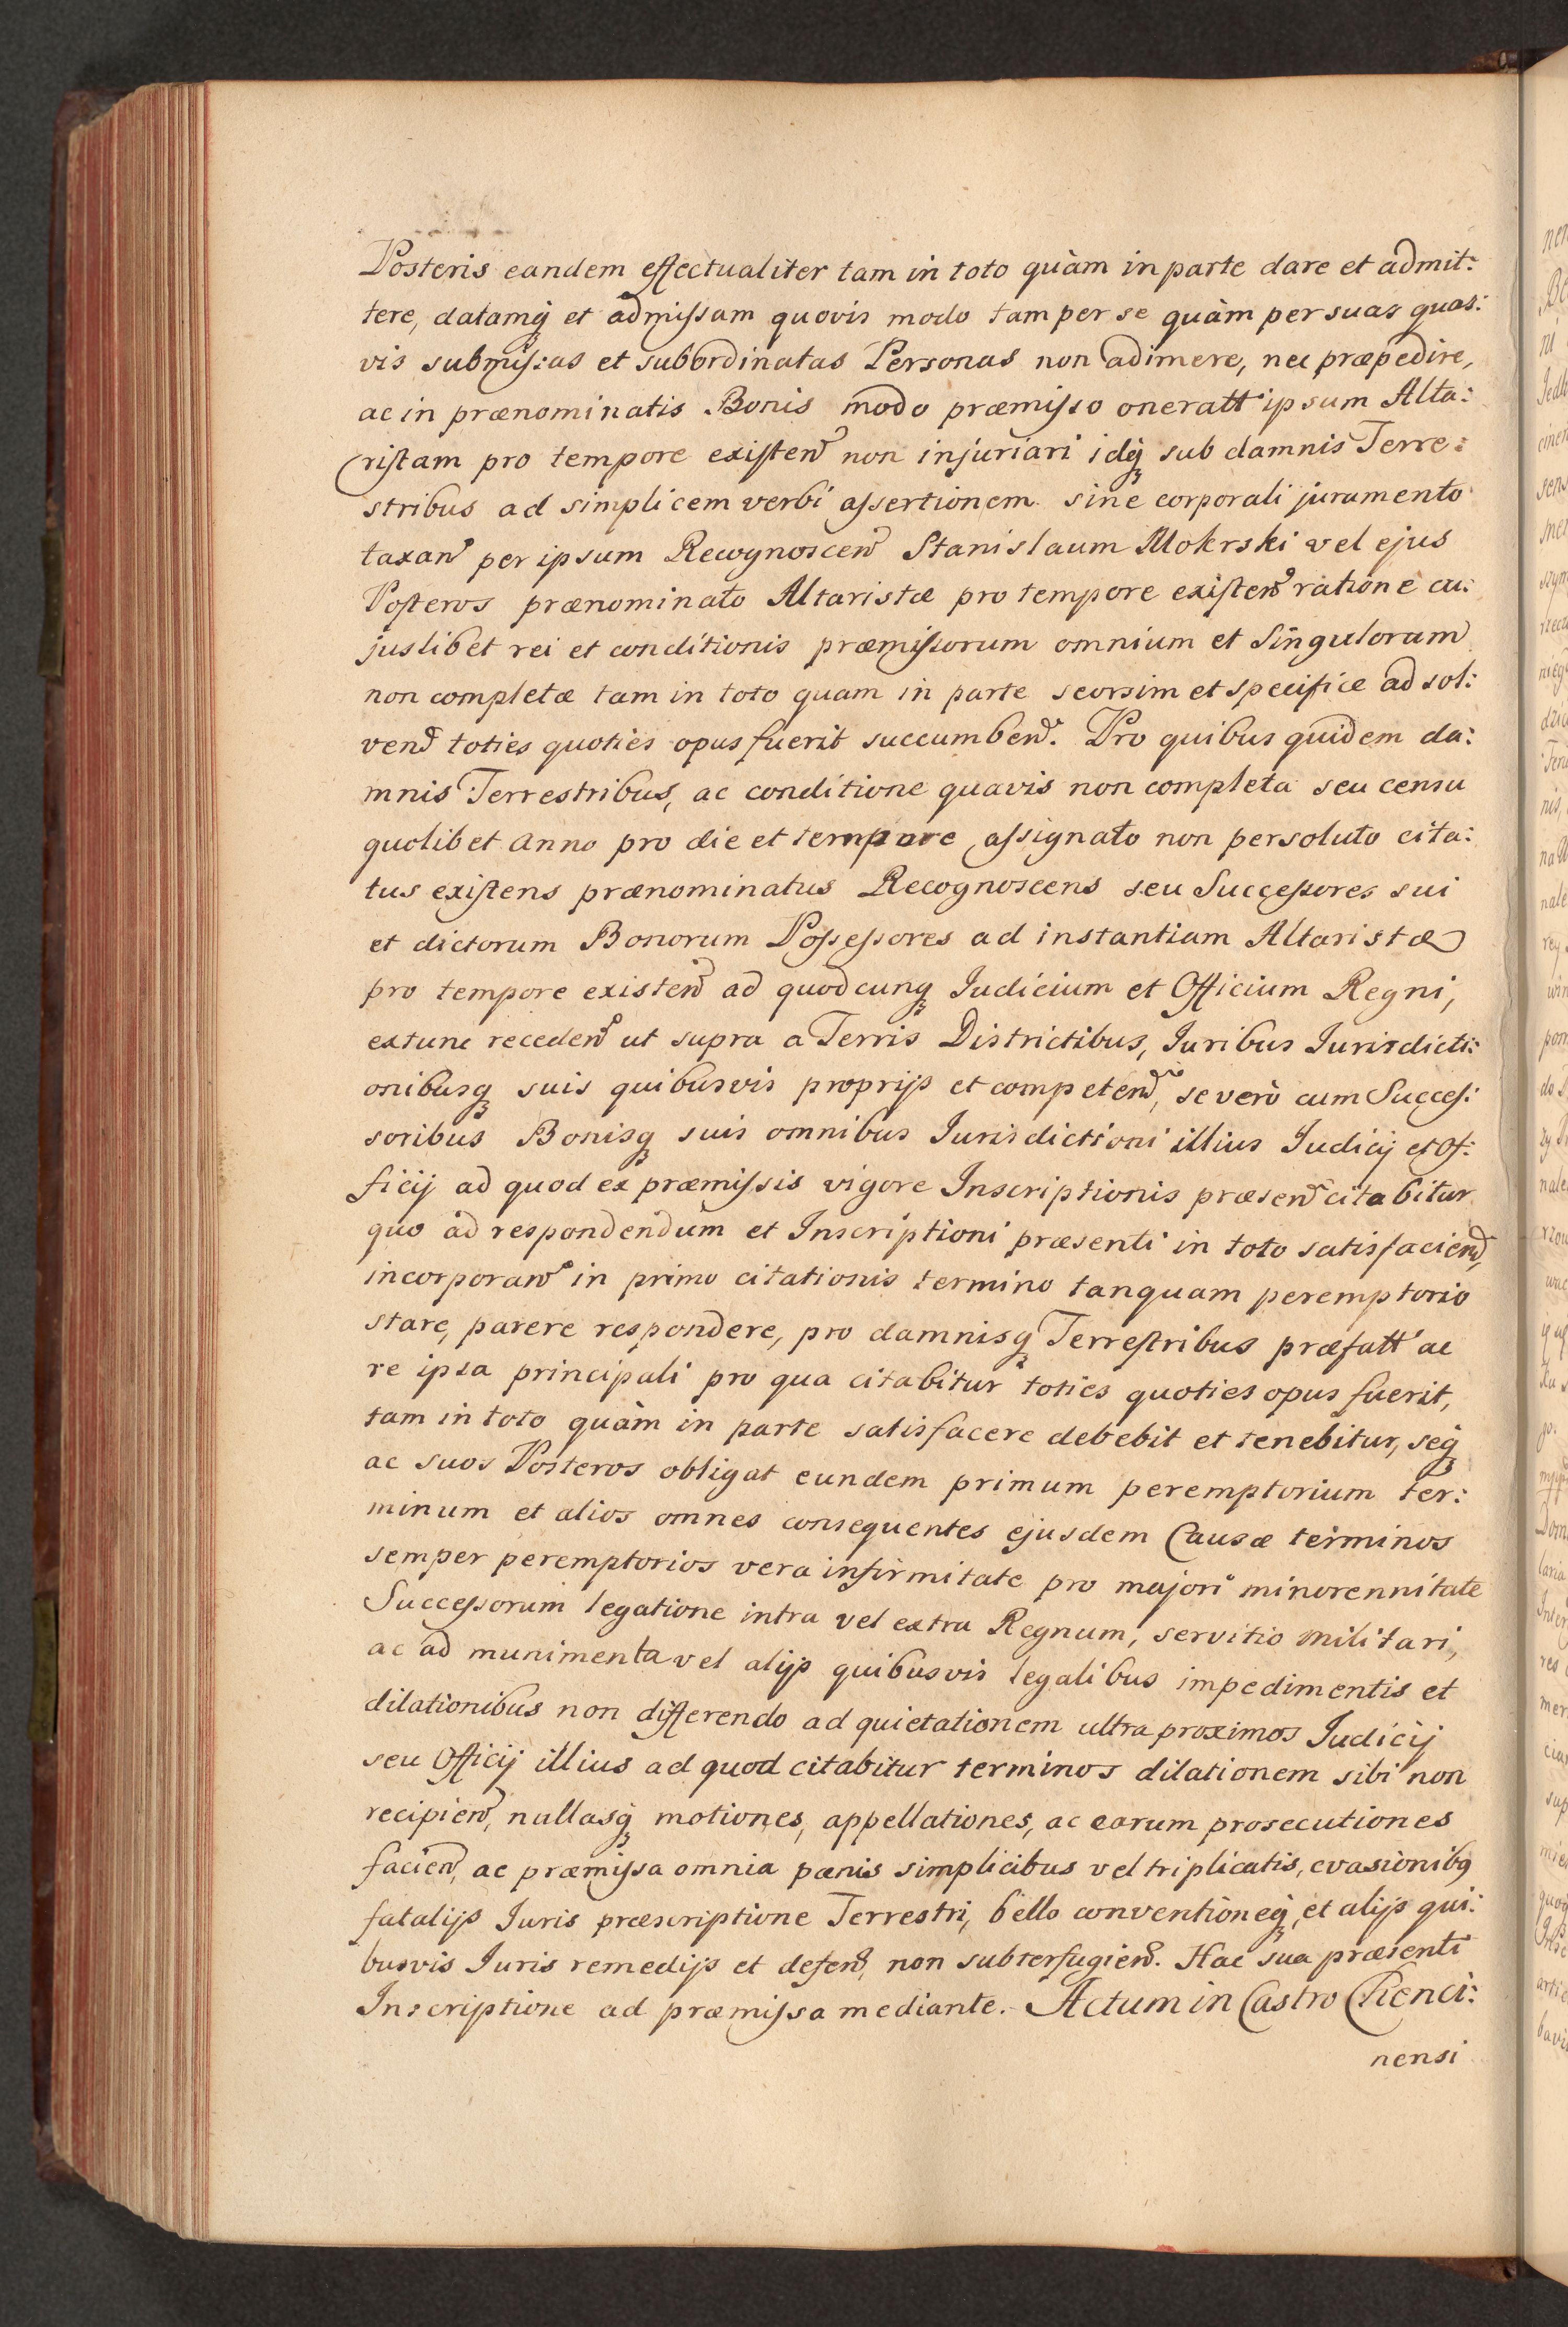 Posteris eandem effectualiter tam in toto quàm in parte dare et admit:
tere, datamq́ et admissam quovis modo tam per se quàm per suas quas:
vis submissas et subordinatas Personas non adimere, nec præpedire,
ac in prænominatis Bonis modo præmisso oneratt ipsum Alta:
ristam pro tempore existen̄ non injuriari idq́ sub damnis Terre:
stribus ad simplicem verbi assertionem sine corporali juramento
taxan̄ per ipsum Recognoscen̄ Stanislaum Mokrski vel ejus
Posteros prænominato Altaristæ pro tempore existen̄ ratione cu:
juslibet rei et conditionis præmissorum omnium et Singulorum
non completæ tam in toto quam in parte seorsim et specifice ad sol:
ven̄ toties quoties opus fuerit succumben̄. Pro quibus quidem da:
mnis Terrestribus, ac conditione quavis non completa seu censu
quolibet Anno pro die et tempore assignato non persoluto cita:
tus existens prænominatus Recognoscens seu Successores sui
et dictorum Bonorum Possessores ad instantiam Altaristæ
pro tempore existen̄ ad quodcunq Iudicium et Officium Regni,
extunc receden̄ ut supra a Terris Districtibus, Iuribus Iurisdicti:
onibusq suis quibusvis proprijs et competen̄, se verò cum Succes:
soribus Bonisq suis omnibus Iurisdictioni illius Iudicij et Of:
ficij ad quod ex præmissis vigore Inscriptionis præsen̄ citabitur
quo ad respondendum et Inscriptioni præsenti in toto satisfacien̄,
incorporan̄ in primo citationis termino tanquam peremptorio
stare, parere respondere, pro damnisq Terrestribus præfatt ac
re ipsa principali pro qua citabitur toties quoties opus fuerit,
tam in toto quàm in parte satisfacere debebit et tenebitur, seq́
ac suos Posteros obligat eundem primum peremptorium ter:
minum et alios omnes consequentes ejusdem Causæ terminos
semper peremptorios vera infirmitate pro majori minorennitate
Successorum legatione intra vel extra Regnum, servitio militari,
ac ad munimenta vel alijs quibusvis legalibus impedimentis et
dilationibus non differendo ad quietationem ultra proximos Iudicij
seu Officij illius ad quod citabitur terminos dilationem sibi non
recipien̄, nullasq́ motiones, appellationes, ac earum prosecutiones
facien̄, ac præmissa omnia pænis simplicibus vel triplicatis, evasionibq
fatalijs Iuris præscriptione Terrestri, bello conventioneq́, et alijs qui:
busvis Iuris remedijs et defen̄, non subterfugien̄. Hac sua præsenti
Inscriptione ad præmissa mediante. Actum in Castro Chenci:
nensi